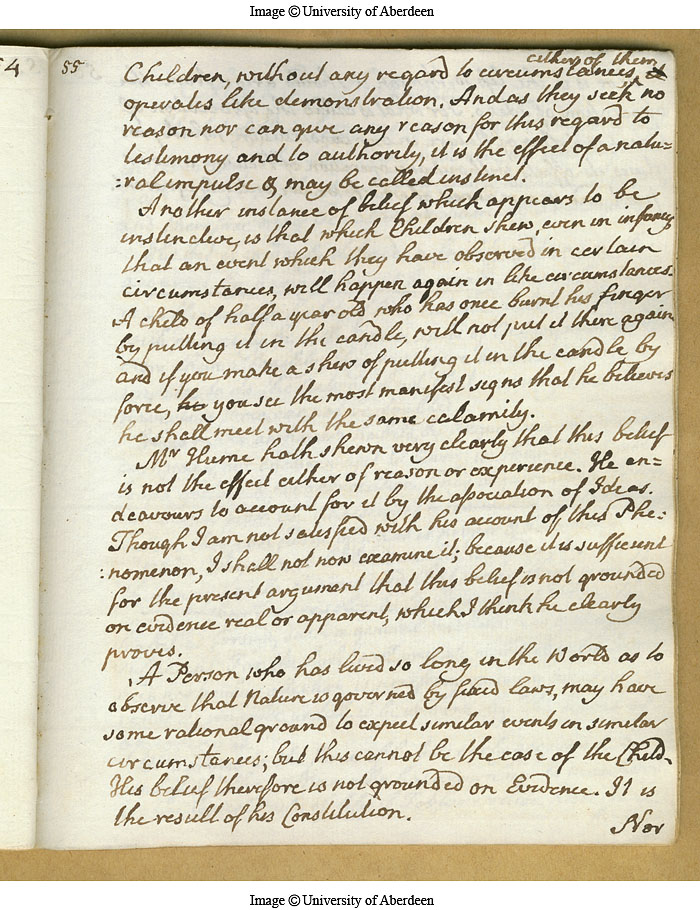 Image © University of Aberdeen
4
55
either of them
Children, without any regard to circumstances,
operates like demonstration. And as they seek no
reason nor can give any reason for this regard to
testimony and to authority, it is the effect of a natu=
:ral impulse & may be called instinct.
Another instance of belief which appears to be
instinctive, is that which Children shew, even in infancy
that an event which they have observed in certain
circumstances, will happen again in like circumstances.
A child of half a year old who has once burnt his finger
by putting it in the candle, will not put it there again
and if you make a shew of putting it in the candle by
force, you see the most manifest signs that he believes
he shall meet with the same calamity.
Mr Hume hath shewn very clearly that this belief
is not the effect either of reason or experience. He en=
deavours to account for it by the association of Ideas.
Though I am not satisfied with his account of this Phe:
:nomenon, I shall not now examine it; because it is sufficient
for the present argument that this belief is not grounded
on evidence real or apparent, which I think he clearly
proves.
A Person who has lived so long in the World as to
observe that Nature is governed by fixed laws, may have
some rational ground to expect similar events in similar
circumstances; but this cannot be the case of the Child.
His belief therefore is not grounded on Evidence. It is
the result of his Constitution.
Nor
Image © University of Aberdeen